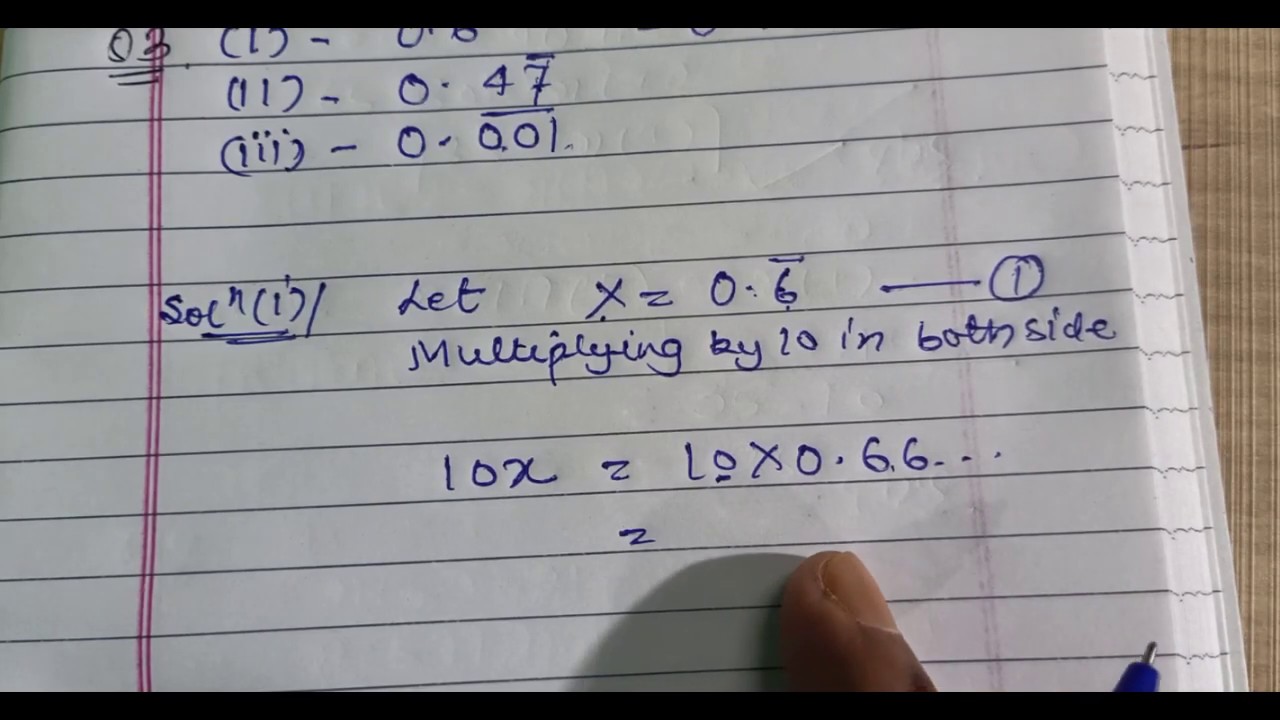 Q3. (i) - 0.6
(ii) - 0.47̅
(iii) - 0.0̅0̅1̅.
Solⁿ(i)/ Let x = 0.6̅ —— ①
Multiplying by 10 in both side
10x = 10×0.66...
=